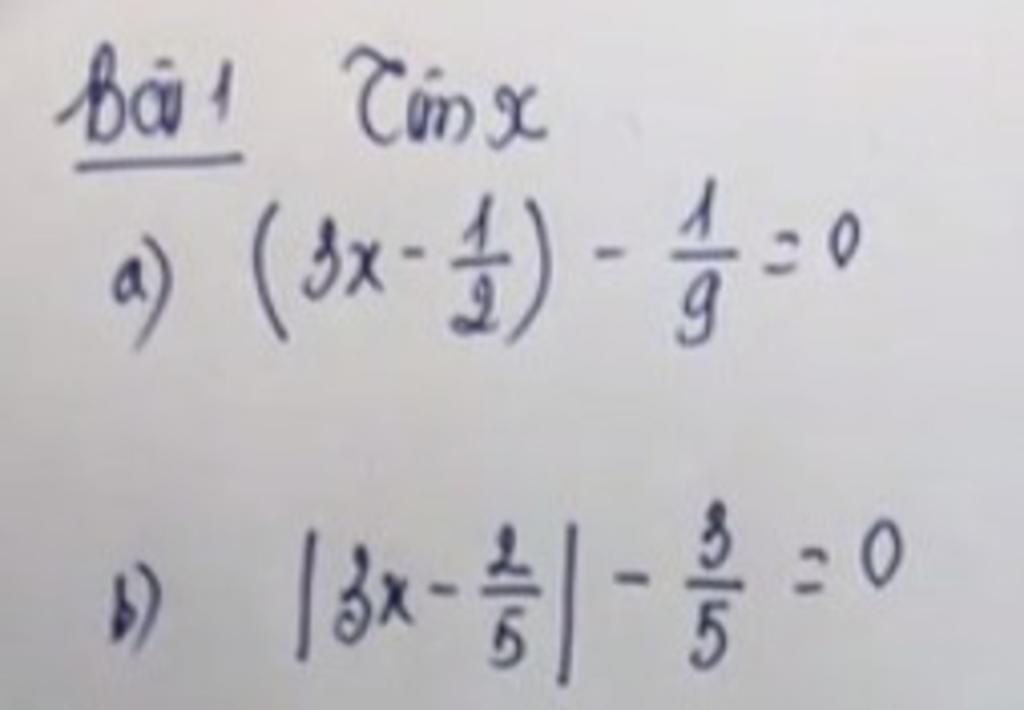 Bài 1 Tìm x
a) (3x - 1/2) - 1/9 = 0
b) |3x - 2/5| - 3/5 = 0